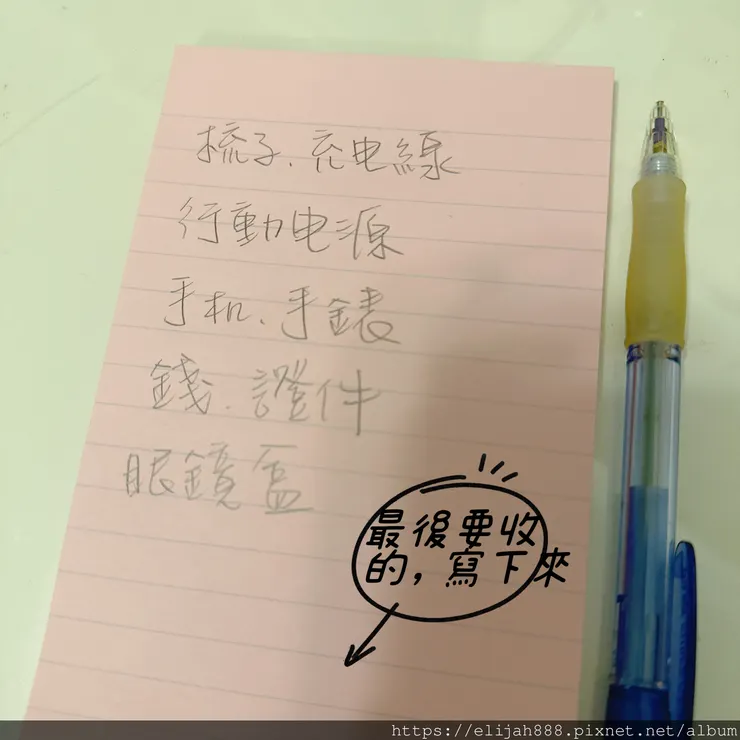 梳子.充电線
行動电源
手机.手錶
錢.證件
眼鏡盒
最後要收
的,寫下來
https://elijah888.pixnet.net/album